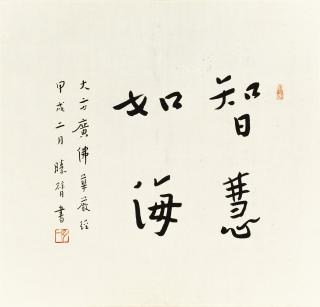 智慧
如海
大方廣佛華嚴經
甲戌二月勝質書